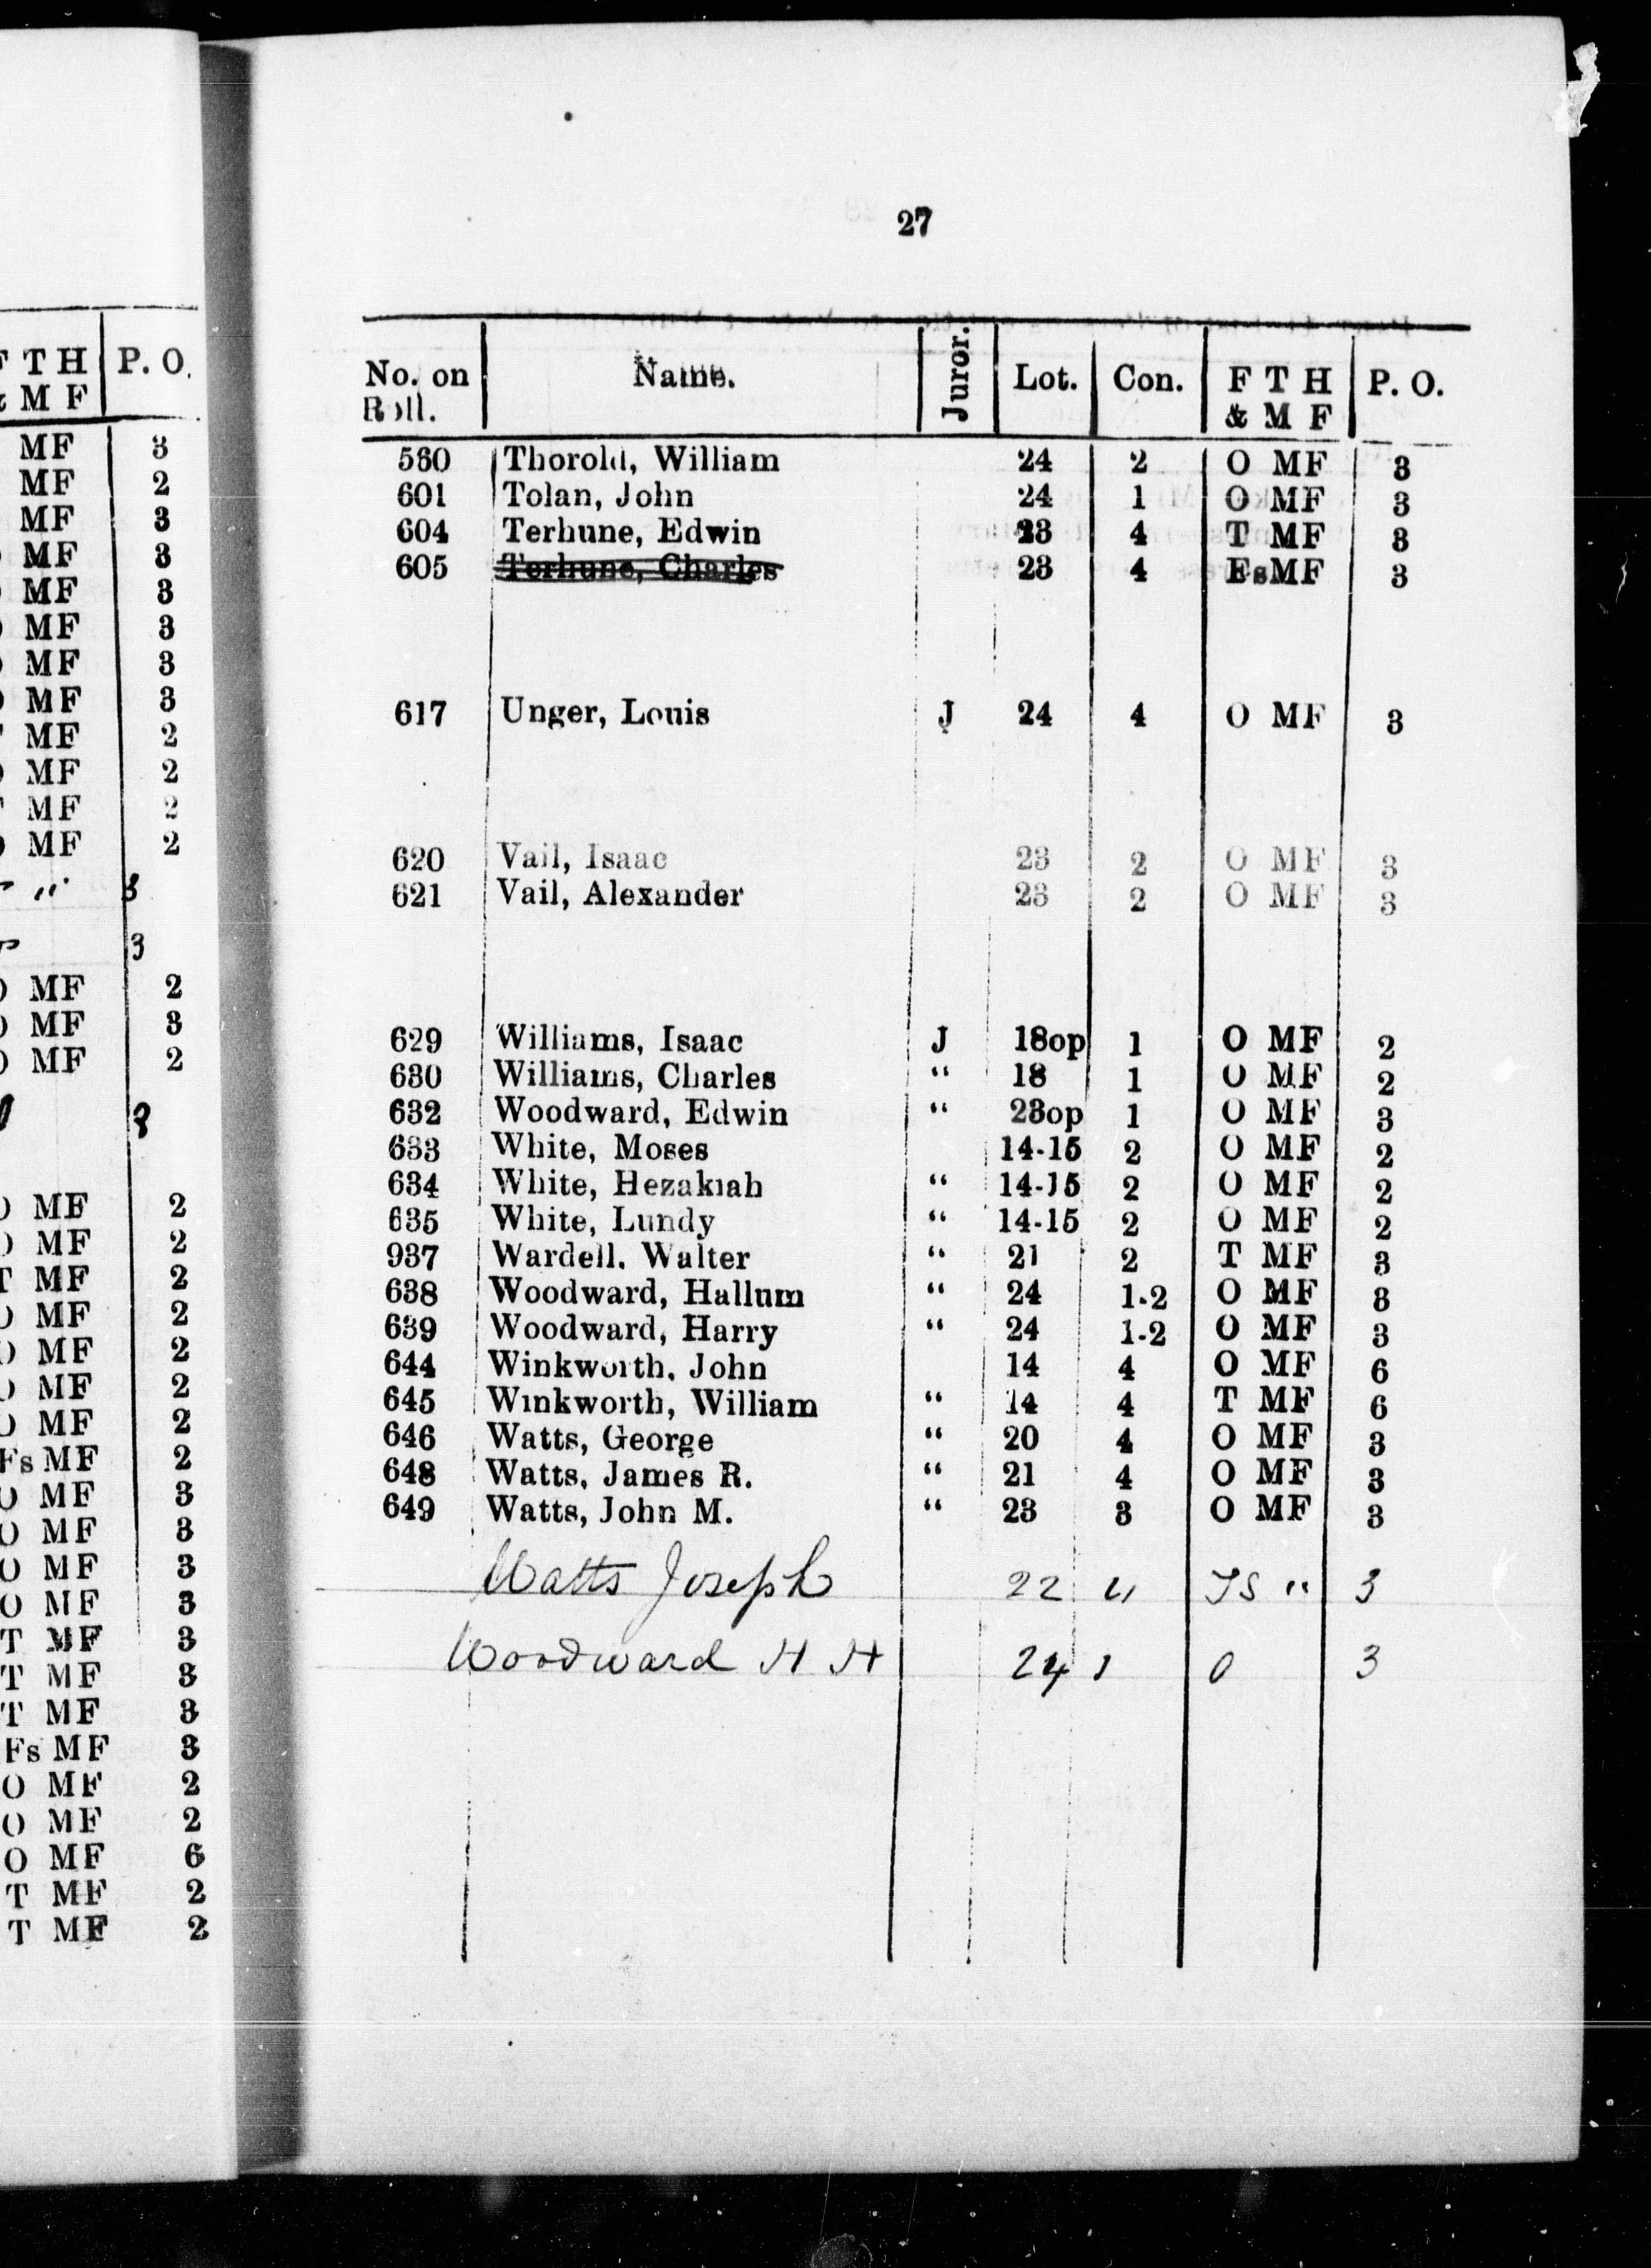 F T H P. O.
& M F
MF 3
MF 2
MF 3
MF 3
MF 3
MF 3
MF 3
MF 3
MF 2
MF 2
MF 2
MF 2
" 3
3
O MF 2
O MF 3
O MF 2
O MF 2
O MF 2
T MF 2
O MF 2
O MF 2
O MF 2
O MF 2
Fs MF 2
O MF 3
O MF 3
O MF 3
O MF 3
T MF 3
T MF 3
T MF 3
Fs MF 3
O MF 2
O MF 2
O MF 6
T MF 2
T MF 2
27
No. on Roll. Name. Juror. Lot. Con. F T H & M F P. O.
560 Thorold, William 24 2 O MF 3
601 Tolan, John 24 1 O MF 3
604 Terhune, Edwin 23 4 T MF 3
605 Terhune, Charles 23 4 FsMF 3
617 Unger, Louis J 24 4 O MF 3
620 Vail, Isaac 23 2 O MF 3
621 Vail, Alexander 23 2 O MF 3
629 Williams, Isaac J 18op 1 O MF 2
630 Williams, Charles " 18 1 O MF 2
632 Woodward, Edwin " 23op 1 O MF 3
633 White, Moses 14-15 2 O MF 2
634 White, Hezakiah " 14-15 2 O MF 2
635 White, Lundy " 14-15 2 O MF 2
937 Wardell. Walter " 21 2 T MF 3
638 Woodward, Hallum " 24 1-2 O MF 3
639 Woodward, Harry " 24 1-2 O MF 3
644 Winkworth, John 14 4 O MF 6
645 Winkworth, William " 14 4 T MF 6
646 Watts, George " 20 4 O MF 3
648 Watts, James R. " 21 4 O MF 3
649 Watts, John M. " 23 3 O MF 3
Watts Joseph 22 4 " 3
Woodward H H 24 1 O 3